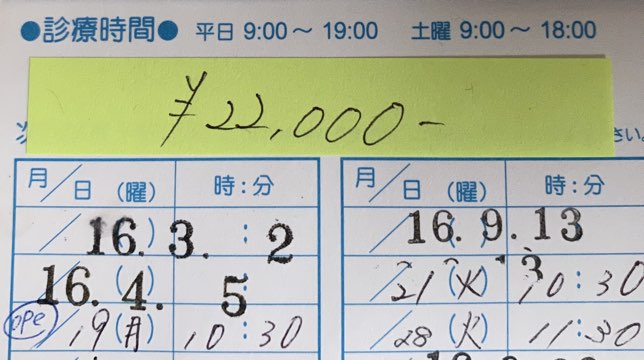 ●診療時間● 平日 9:00～19:00 土曜 9:00～18:00
¥22,000-
さい。
月/日(曜) 時:分
/ 16.) 3. : 2
16. 4. 5
ope /19(月) 10:30
月/日(曜) 時:分
/ 16. 9. 13
/21(火) 10:30
/28(火) 11:30